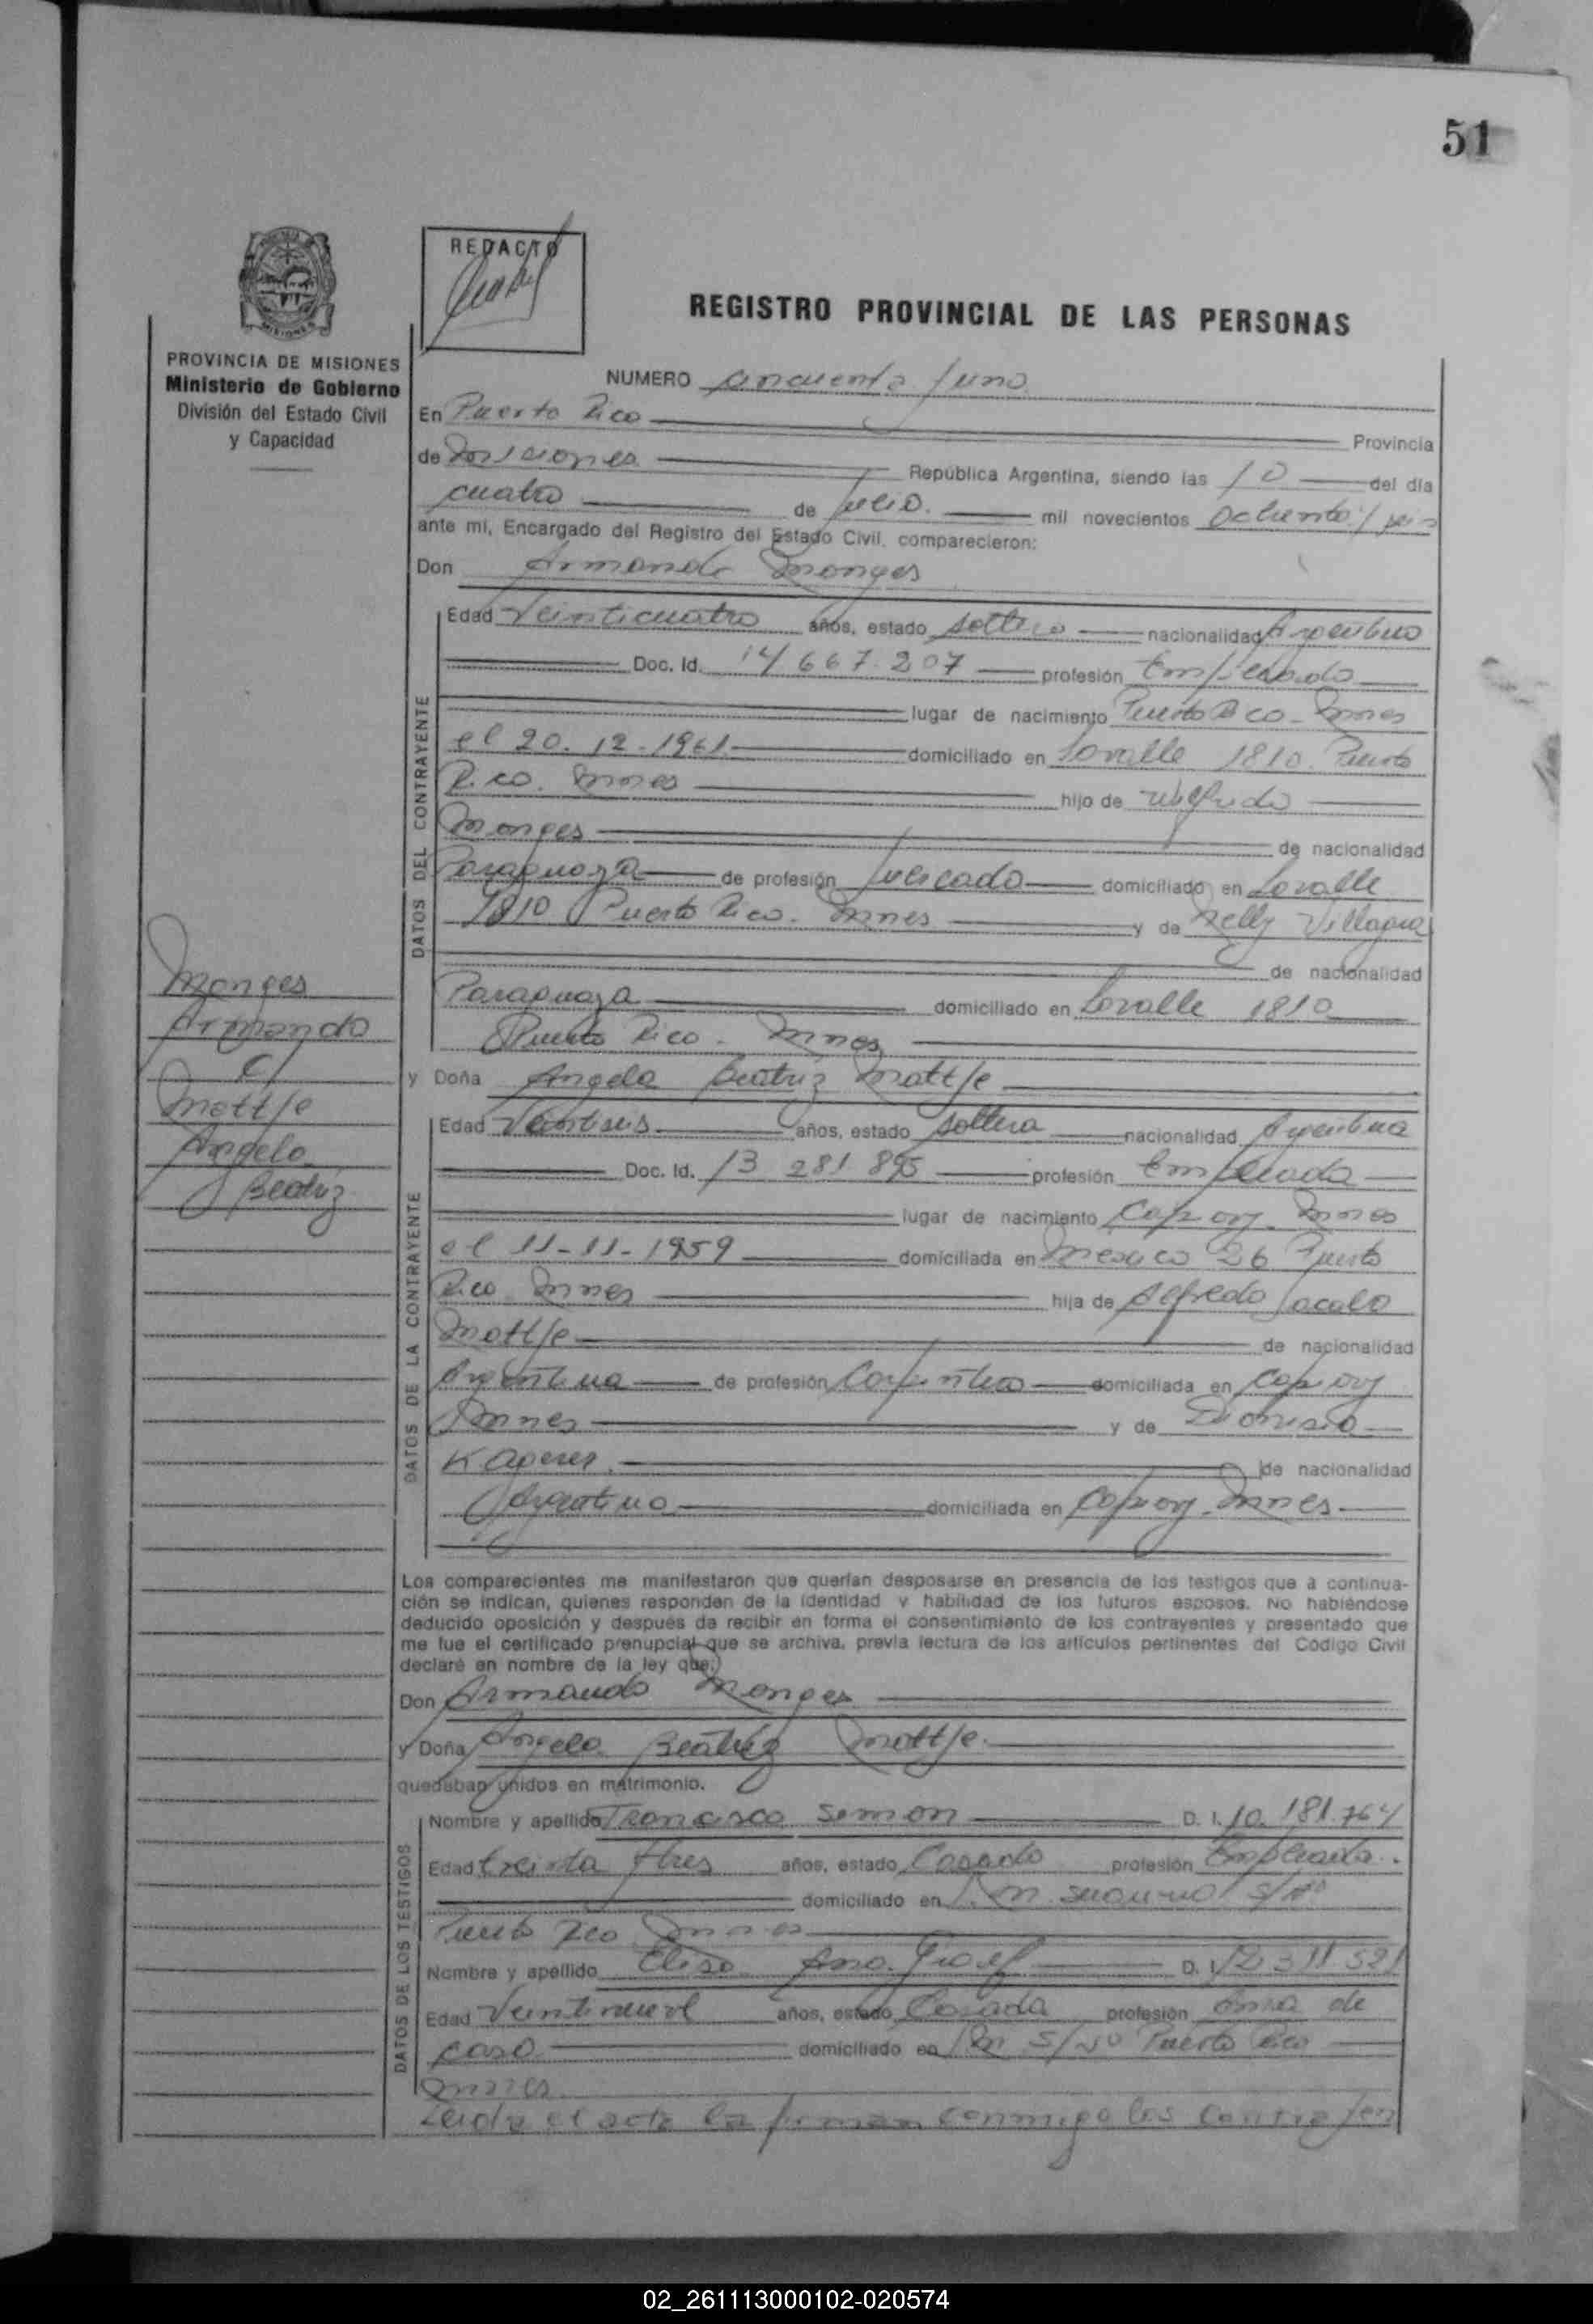 51
REDACTO
REGISTRO PROVINCIAL DE LAS PERSONAS
PROVINCIA DE MISIONES
Ministerio de Gobierno
División del Estado Civil
y Capacidad
NUMERO cincuenta y uno
En Puerto Rico Provincia
de Misiones República Argentina, siendo las 10 del día
cuatro de julio. mil novecientos ochenta y seis
ante mi, Encargado del Registro del Estado Civil, comparecieron:
Don Armando Monges
Edad Veinticuatro años, estado soltero nacionalidad Argentino
Doc. Id. 14 667.207 profesión Empleado
lugar de nacimiento Puerto Rico - Mnes
el 20.12.1961 domiciliado en Lavalle 1810 Puerto
Rico. Mnes hijo de Wilfrido
Monges de nacionalidad
Paraguaya de profesión Jubilado domiciliado en Lavalle
1810 Puerto Rico. Mnes y de Nelly Villagra
de nacionalidad
Paraguaya domiciliado en Lavalle 1810
Puerto Rico - Mnes
y Doña Angela Beatriz Mattje
Edad Veintiseis años, estado soltera nacionalidad Argentina
Doc. Id. 13 281 895 profesión Empleada
lugar de nacimiento Capiovy - Mnes
el 11-11-1959 domiciliada en Mexico 26 Puerto
Rico Mnes hija de Alfredo Jacobo
Mattje de nacionalidad
Argentina de profesión Carpintero domiciliada en Capiovy
Mnes y de Dionisia
Kaperer. de nacionalidad
Argentina domiciliada en Capiovy - Mnes
Monges
Armando
c/
Mattje
Angela
Beatriz
DATOS DEL CONTRAYENTE
DATOS DE LA CONTRAYENTE
Los comparecientes me manifestaron que querían desposarse en presencia de los testigos que a continua-
ción se indican, quienes responden de la identidad y habilidad de los futuros esposos. No habiéndose
deducido oposición y después de recibir en forma el consentimiento de los contrayentes y presentado que
me fue el certificado prenupcial que se archiva, previa lectura de los artículos pertinentes del Código Civil
declaré en nombre de la ley que:
Don Armando Monges
y Doña Angela Beatriz Mattje.
quedaban unidos en matrimonio.
DATOS DE LOS TESTIGOS
Nombre y apellido Francisco Simon D. I. 10.181.764
Edad treinta y tres años, estado Casado profesión Empleado.
domiciliado en s/nº
Puerto Rico Mnes
Nombre y apellido Elisa Ana D. I. 12 311 521
Edad Veintinueve años, estado Casada profesión Ama de
casa domiciliado en s/nº Puerto Rico
Mnes
Leida el acta la firman conmigo los contrayen
02_261113000102-020574